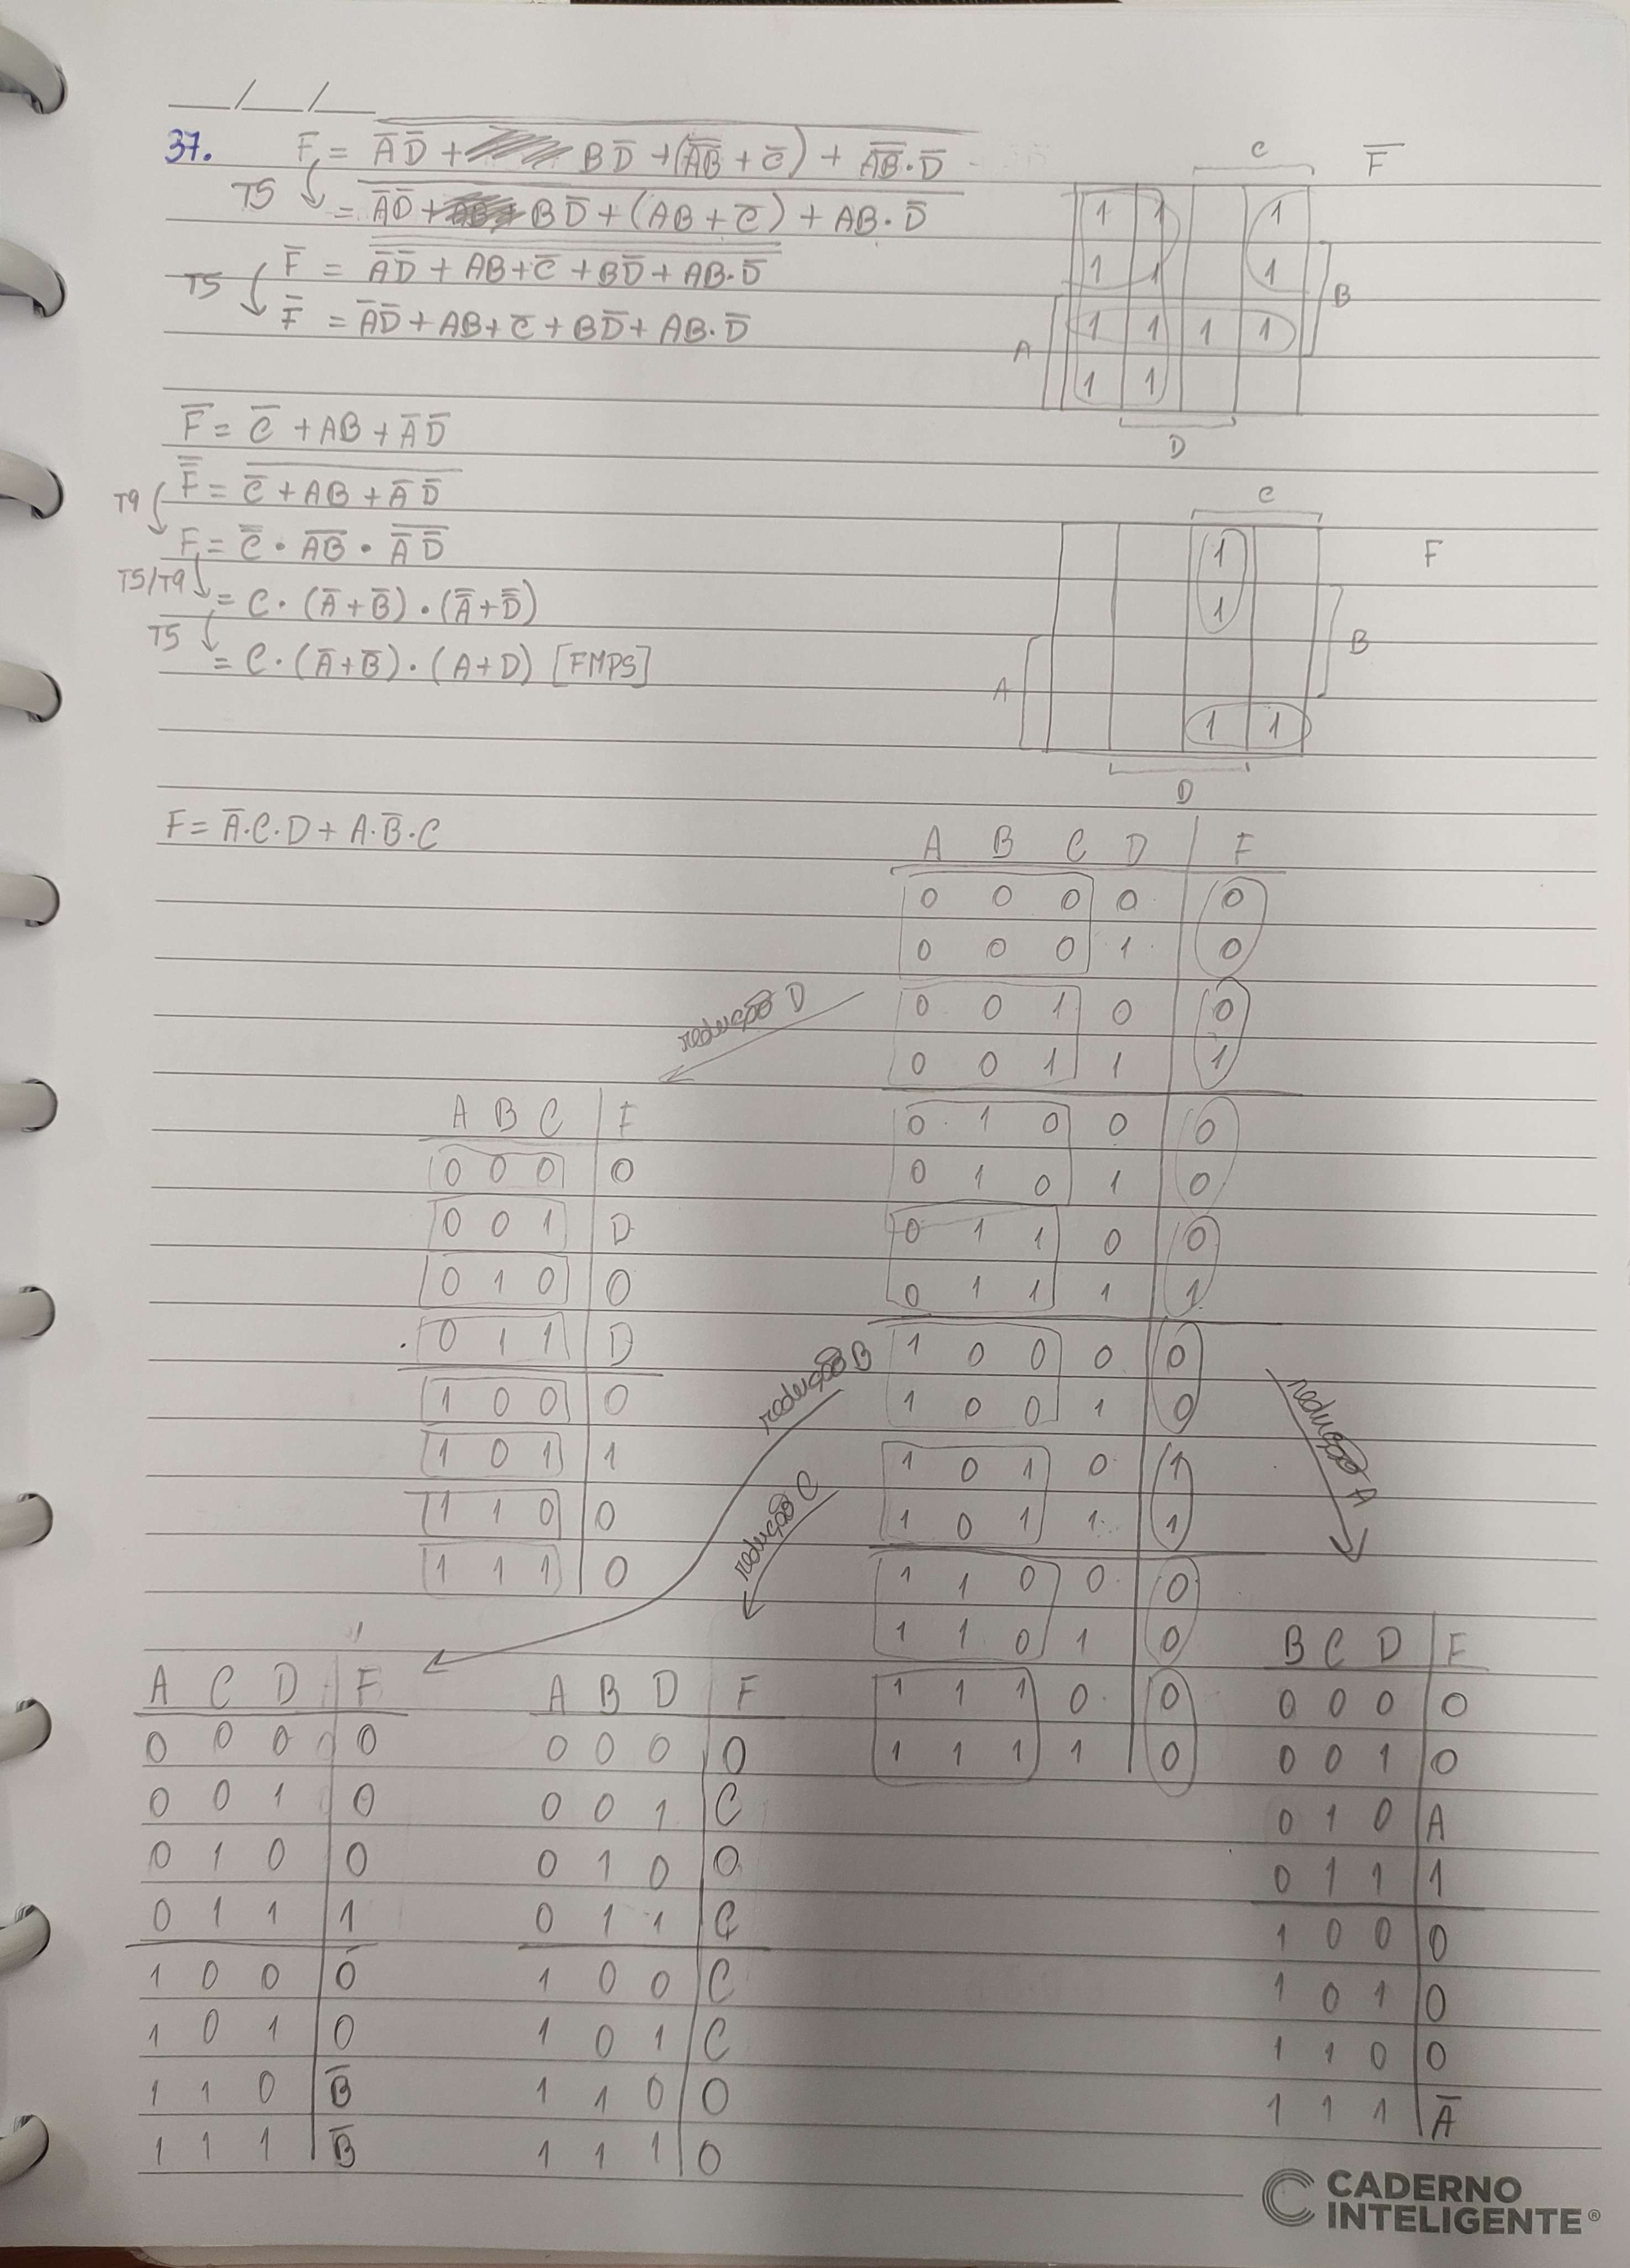 __/__/__
37. F = A̅D̅ + BD̅ + (A̅B̅ + C̅) + A̅B̅·D̅
T5 = A̅D̅ + BD̅ + (AB + C̅) + AB·D̅
F̅ = A̅D̅ + AB + C̅ + BD̅ + AB·D̅
T5 F̅ = A̅D̅ + AB + C̅ + BD̅ + AB·D̅
C F̅
1 1 1
1 1 1
B
1 1 1 1
A
1 1
D
F̅ = C̅ + AB + A̅D̅
F̿ = C̅ + AB + A̅D̅
T9 F = C̿ · A̅B̅ · A̅ D̅
T5/T9 = C · (A̅ + B̅) · (A̿ + D̿)
T5 = C · (A̅ + B̅) · (A + D) [FMPS]
C
1 F
1
B
A
1 1
D
F = A̅·C·D + A·B̅·C
A B C D F
0 0 0 0 0
0 0 0 1 0
0 0 1 0 0
0 0 1 1 1
0 1 0 0 0
0 1 0 1 0
0 1 1 0 0
0 1 1 1 1
1 0 0 0 0
1 0 0 1 0
1 0 1 0 1
1 0 1 1 1
1 1 0 0 0
1 1 0 1 0
1 1 1 0 0
1 1 1 1 0
redução D
A B C F
0 0 0 0
0 0 1 D
0 1 0 0
0 1 1 D
1 0 0 0
1 0 1 1
1 1 0 0
1 1 1 0
redução B
A C D F
0 0 0 0
0 0 1 0
0 1 0 0
0 1 1 1
1 0 0 0
1 0 1 0
1 1 0 B̅
1 1 1 B̅
redução C
A B D F
0 0 0 0
0 0 1 C
0 1 0 0
0 1 1 C
1 0 0 C
1 0 1 C
1 1 0 0
1 1 1 0
redução A
B C D F
0 0 0 0
0 0 1 0
0 1 0 A
0 1 1 1
1 0 0 0
1 0 1 0
1 1 0 0
1 1 1 A̅
CADERNO
INTELIGENTE®